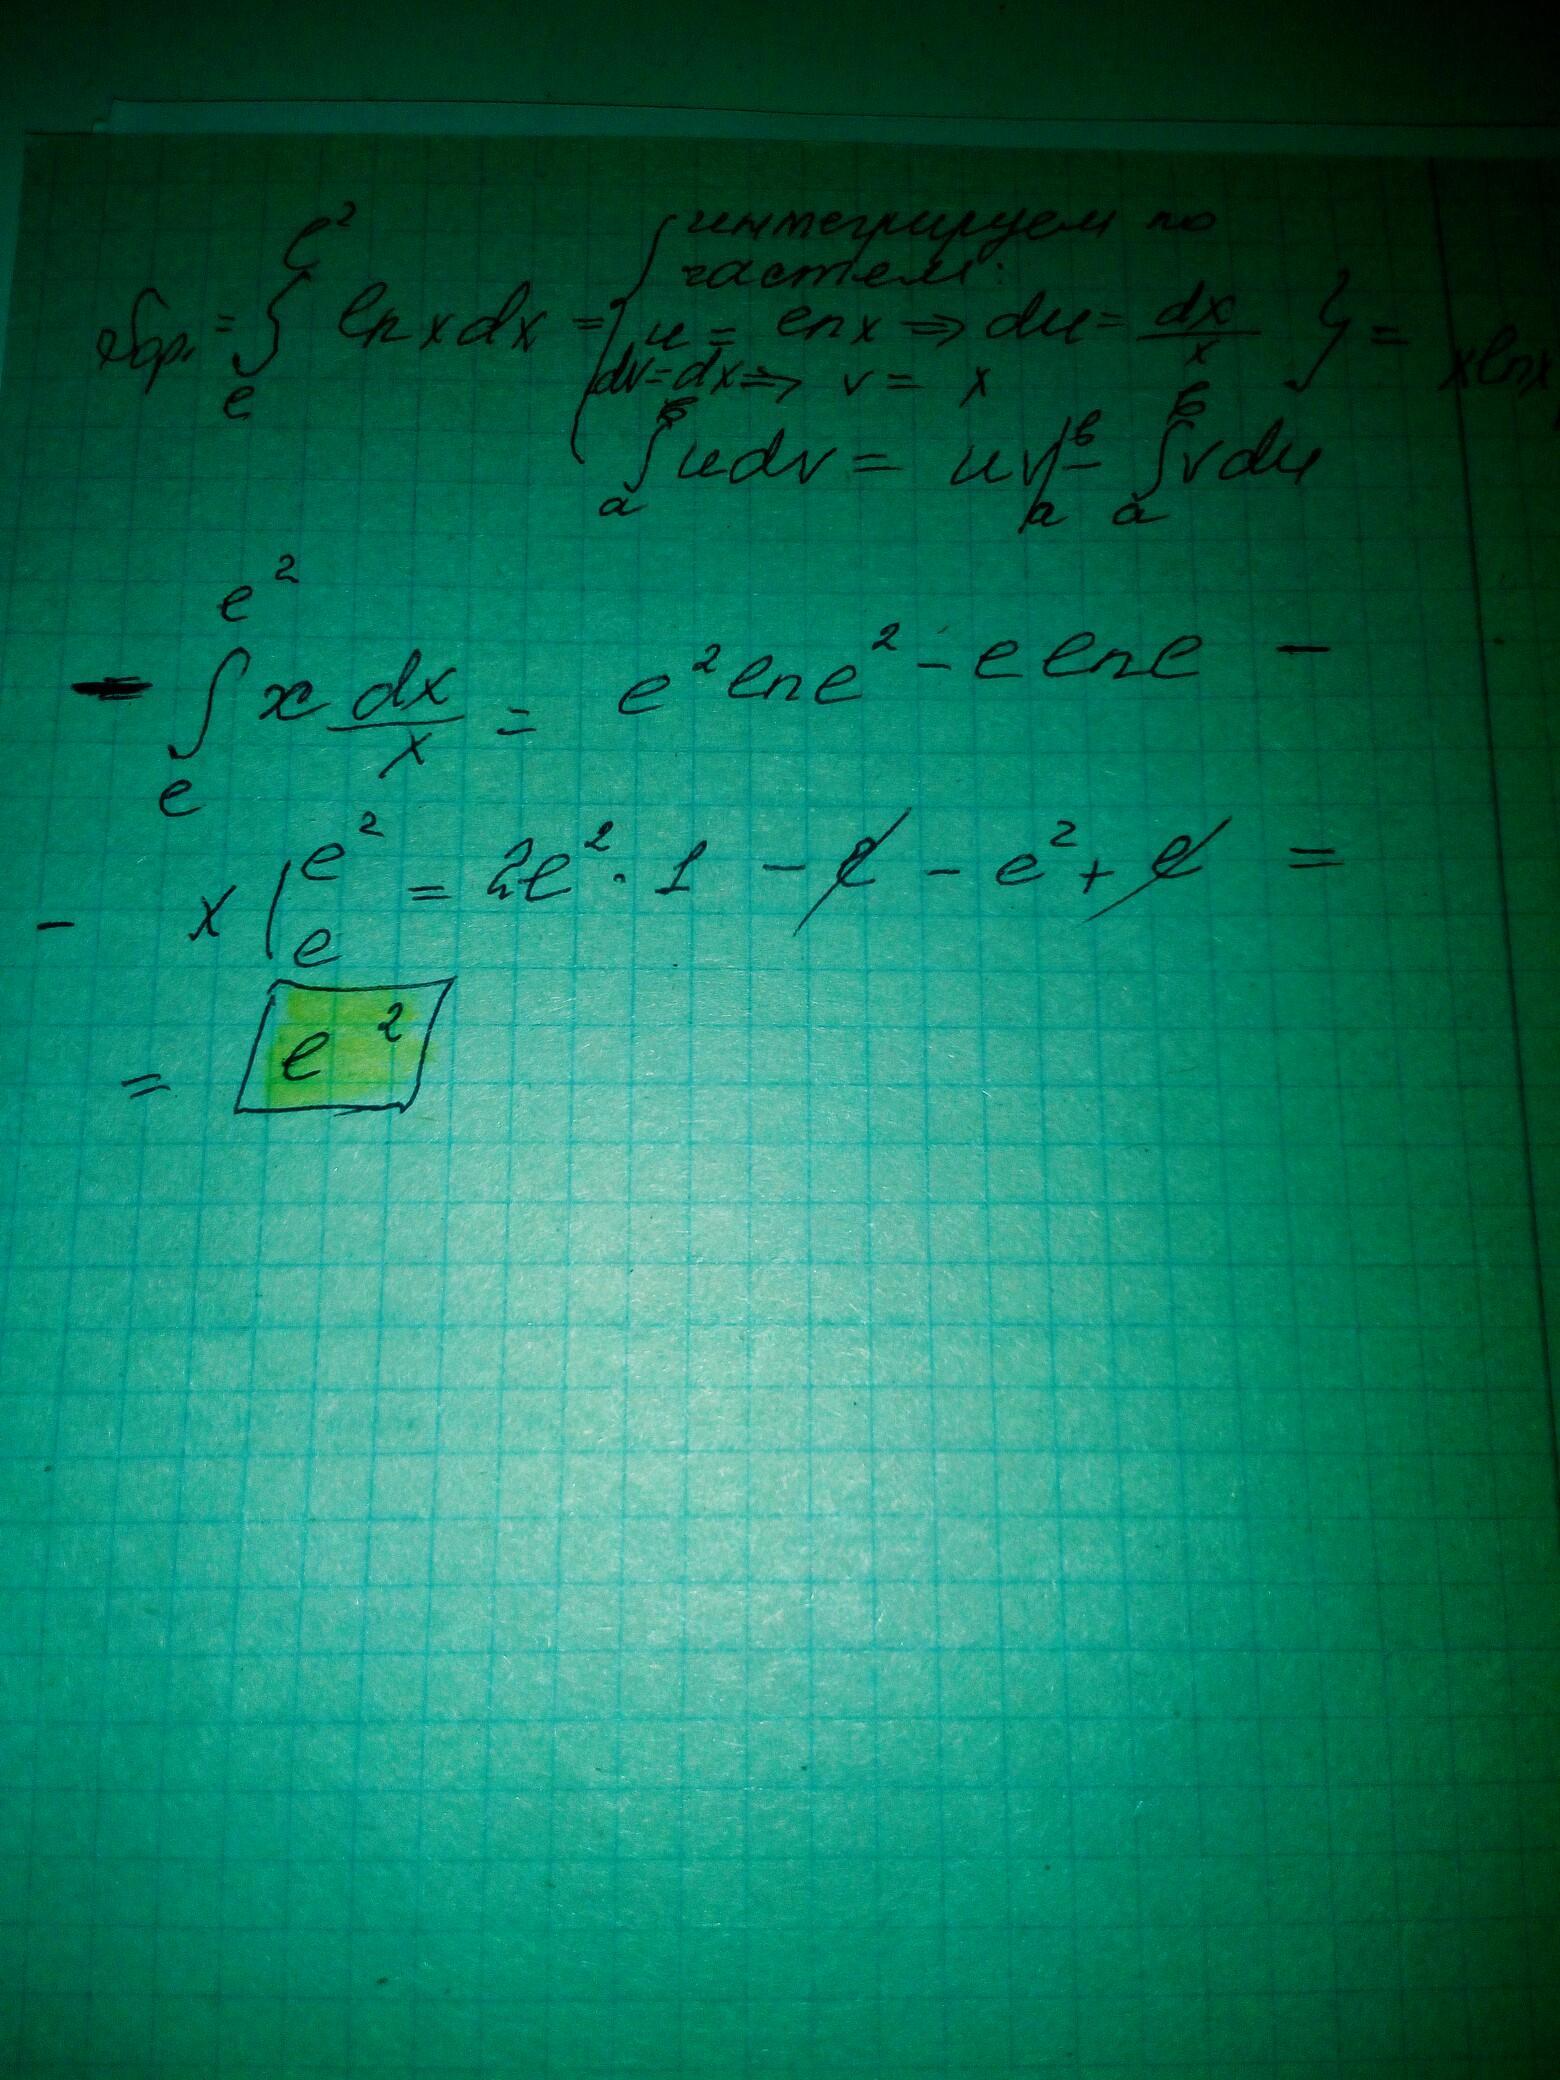 Sпл = ∫ₑ^(e²) ln x dx = { интегрируем по
частям:
u = ln x ⇒ du = dx/x } = x ln x
dv = dx ⇒ v = x
∫ₐᵇ u dv = uv|ₐᵇ − ∫ₐᵇ v du
− ∫ₑ^(e²) x dx/x = e² ln e² − e ln e −
− x|ₑ^(e²) = 2e² · 1 − e − e² + e =
= e²